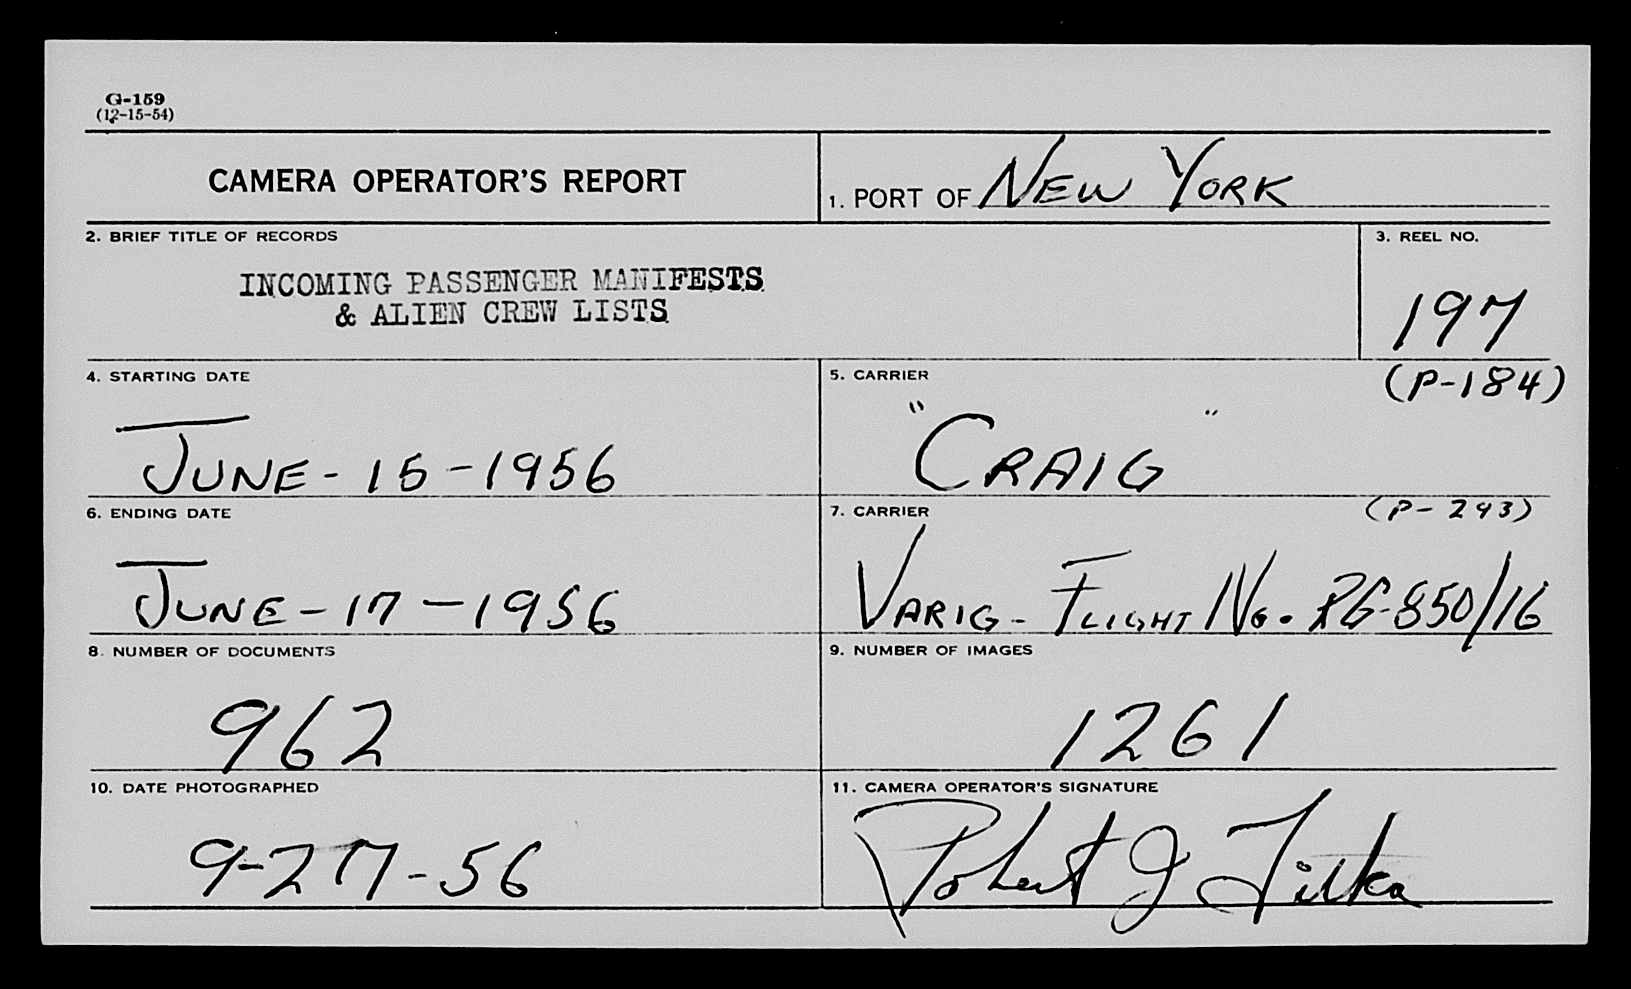 G-159
(12-15-54)
CAMERA OPERATOR'S REPORT
1. PORT OF NEW YORK
2. BRIEF TITLE OF RECORDS
INCOMING PASSENGER MANIFESTS
& ALIEN CREW LISTS
3. REEL NO.
197
4. STARTING DATE
JUNE-15-1956
5. CARRIER
(P-184)
"CRAIG"
6. ENDING DATE
JUNE-17-1956
7. CARRIER
(P-293)
VARIG- FLIGHT No. RG-850/16
8. NUMBER OF DOCUMENTS
962
9. NUMBER OF IMAGES
1261
10. DATE PHOTOGRAPHED
9-27-56
11. CAMERA OPERATOR'S SIGNATURE
Robert J